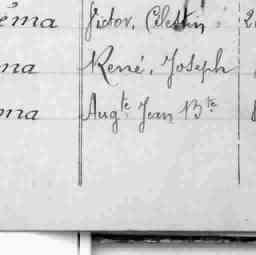 éma Victor, Célestin
ma René, Joseph
ma Augte Jean Bte